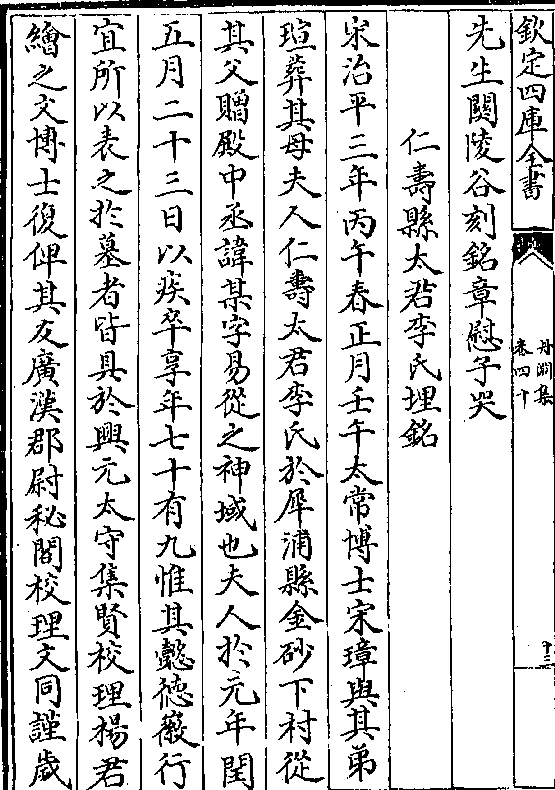 欽定四庫全書
丹淵集
卷四十
十三
先生閟陵谷刻銘章慰子哭
仁壽縣太君李氏埋銘
宋治平三年丙午春正月壬午太常博士宋璋與其弟
瑄葬其母夫人仁壽太君李氏於犀浦縣金砂下村從
其父贈殿中丞諱某字易從之神域也夫人於元年閏
五月二十三日以疾卒享年七十有九惟其懿德徽行
宜所以表之於墓者皆具於興元太守集賢校理楊君
繪之文博士復俾其友廣漢郡尉秘閣校理文同謹歲